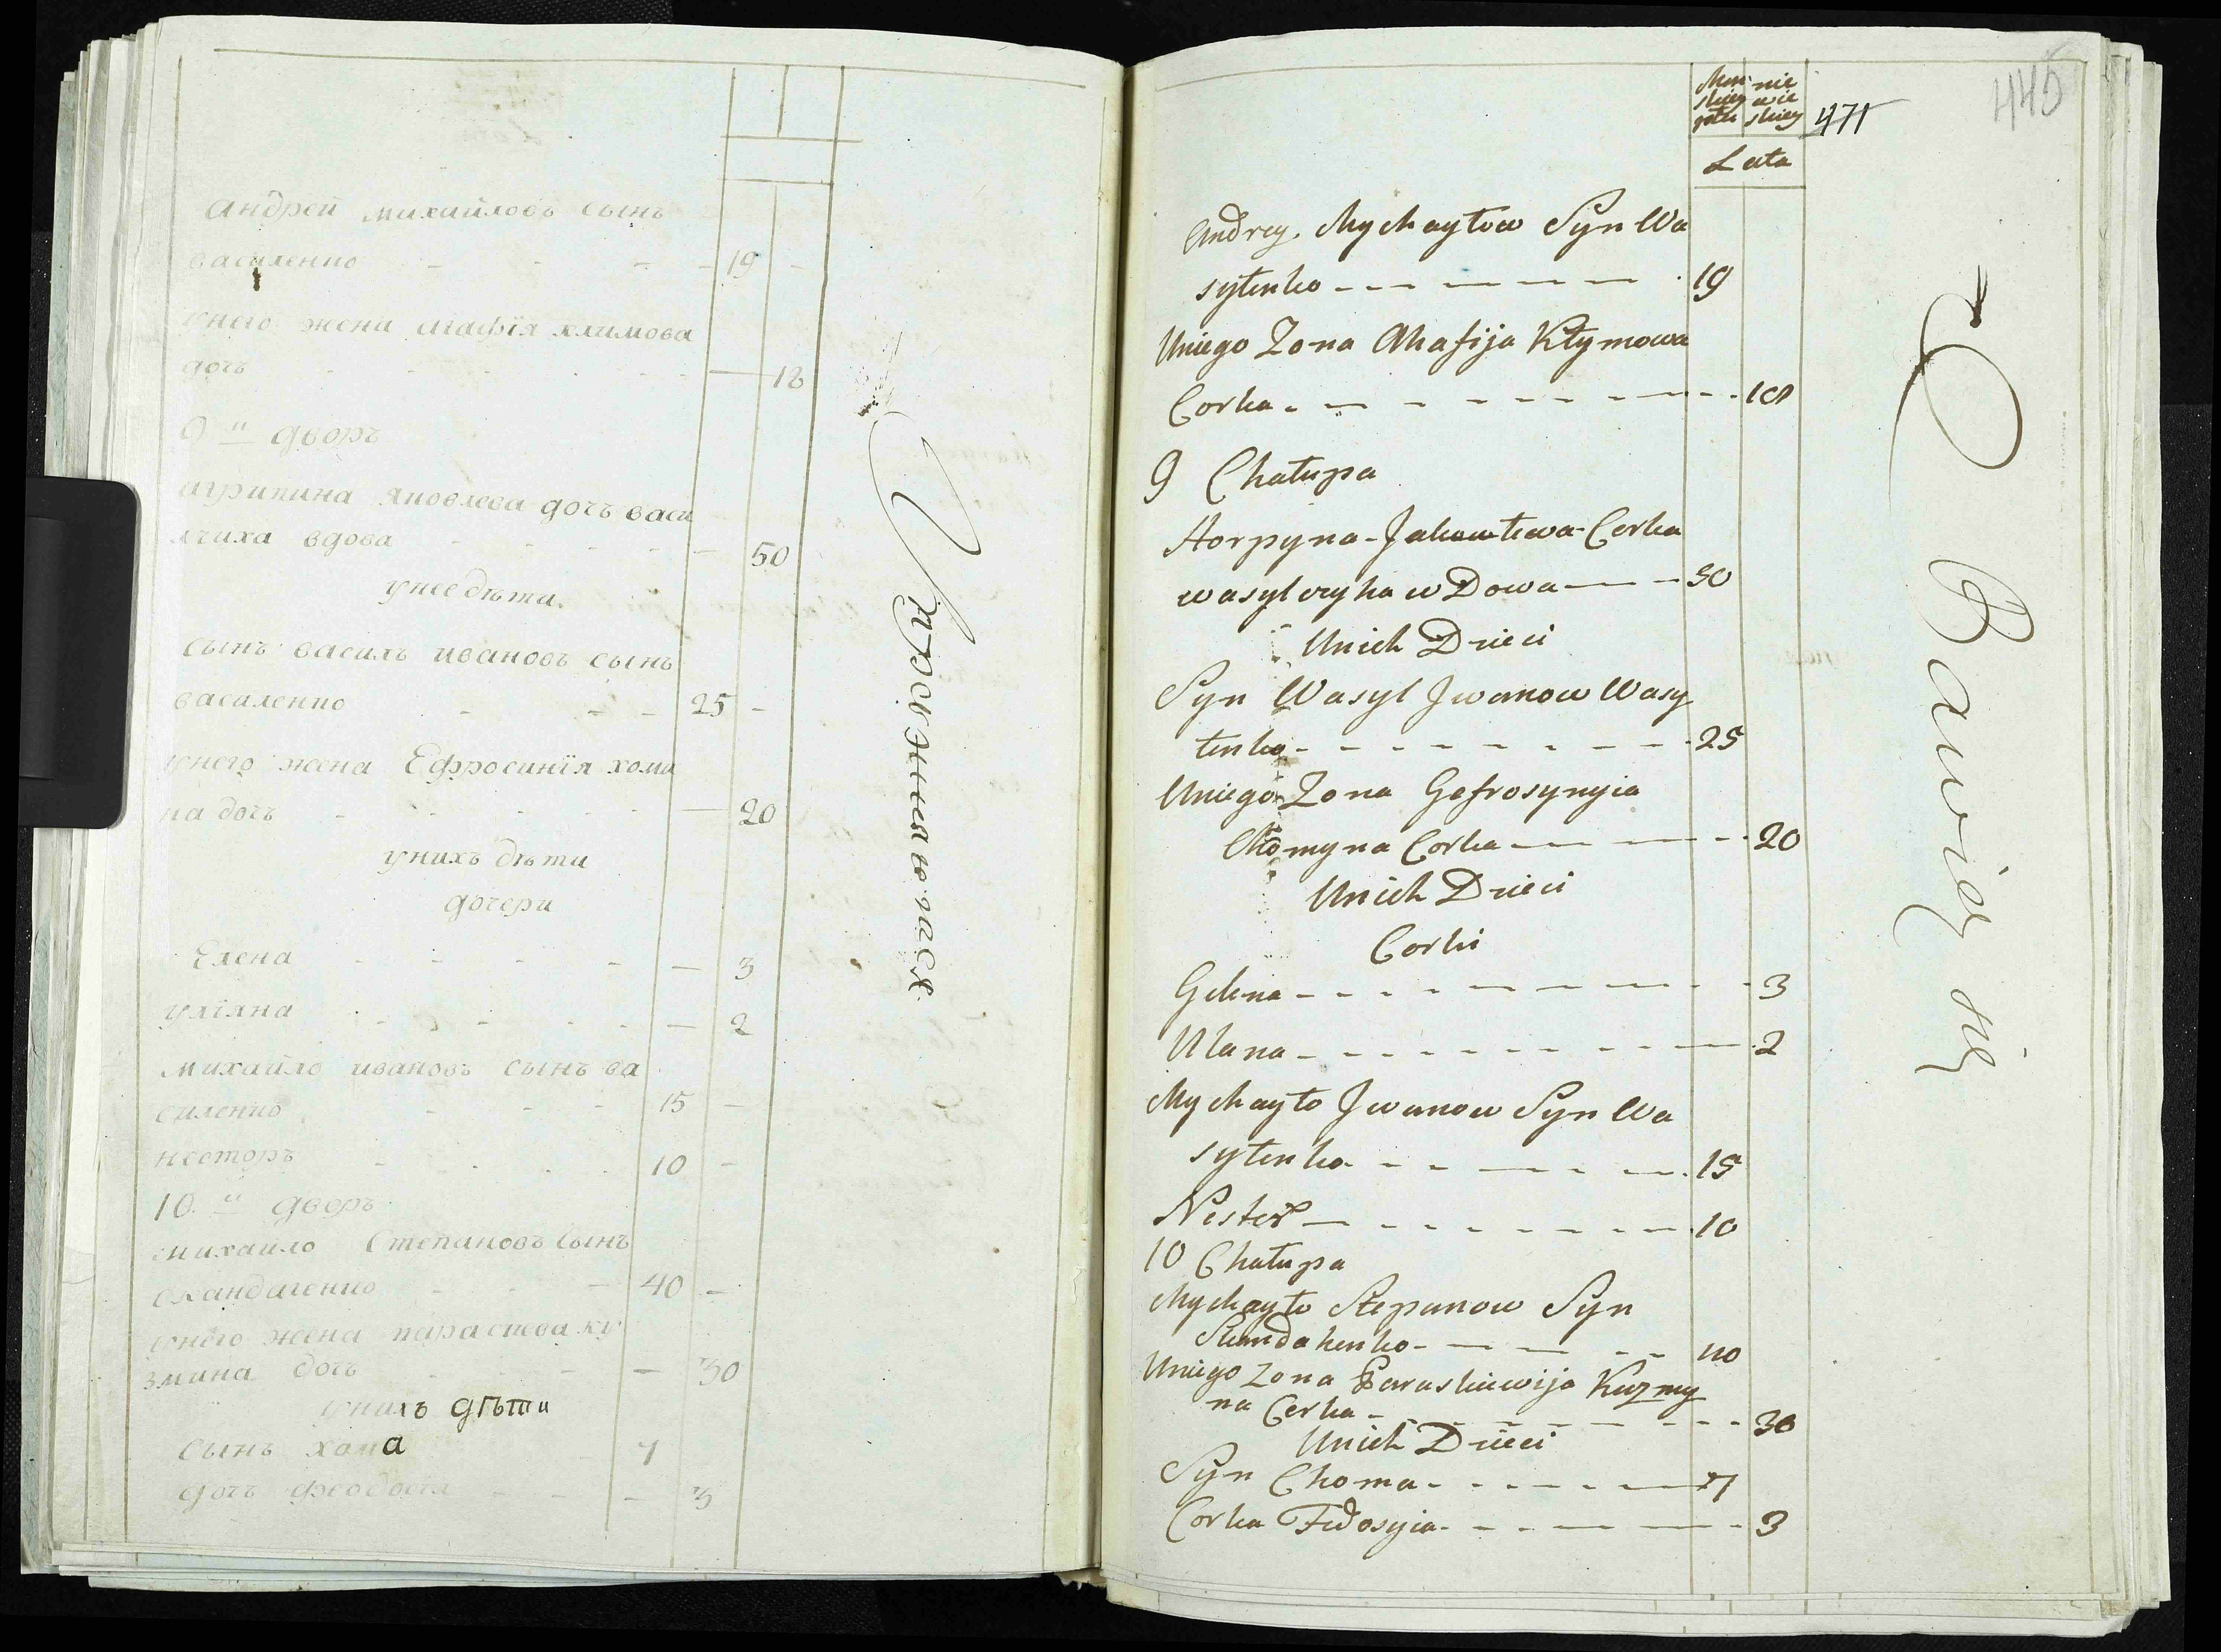 андрей михайловъ сынъ
василенко - - - - 19 -
унего жена агафїя климова
дочь - - - - - 18
9 й дворъ
агрипина яковлева дочъ васи
лчиха вдова - - - - 50
унее дѣти.
сынъ василь ивановъ сынъ
василенко - - - 25 -
унего жена Ефросинїя хоми
на дочь - - - - 20
унихъ дѣти
дочери
Елена - - - - - 3
улїяна - - - - - 2
михайло ивановъ сынъ ва
силенко - - - 15 -
несторъ - - - - 10 -
10 й дворъ
михайло Степановъ Сынъ
скандагенко - - - 40 -
унего жена параскева ку
змина дочь - - - 30
унихъ дѣти
сынъ хома 7
дочъ феодосїя - - - 3
445
471
Męz nie
skiey wie
płci skiey
Lata
Andrey Mychayłow Syn Wa
syłenko - - - - - - - 19
Uniego Zona Ahafija Kłymowa
Corka - - - - - - - - 18
9 Chałupa
Horpyna Jakowłewa Corka
wasylczyha wDowa - - - 50
Unich Dzieci
Syn Wasyl Jwanow Wasy
łenko - - - - - - - - 25
Uniego Zona Gefrosynyia
Chomyna Corka - - - - 20
Unich Dzieci
Corki
Gelena - - - - - - - - 3
Ulana - - - - - - - - 2
Mychayło Jwanow Syn Wa
syłenko - - - - - - 15
Nester - - - - - - - 10
10 Chałupa
Mychayło Stepanow Syn
Skandahenko - - - - - 40
Uniego Zona Paraskiewija Kuzmy
na Corka - - - - - - - 30
Unich Dzieci
Syn Choma - - - - - - 7
Corka Fedosyia - - - - - 3
Bawią się